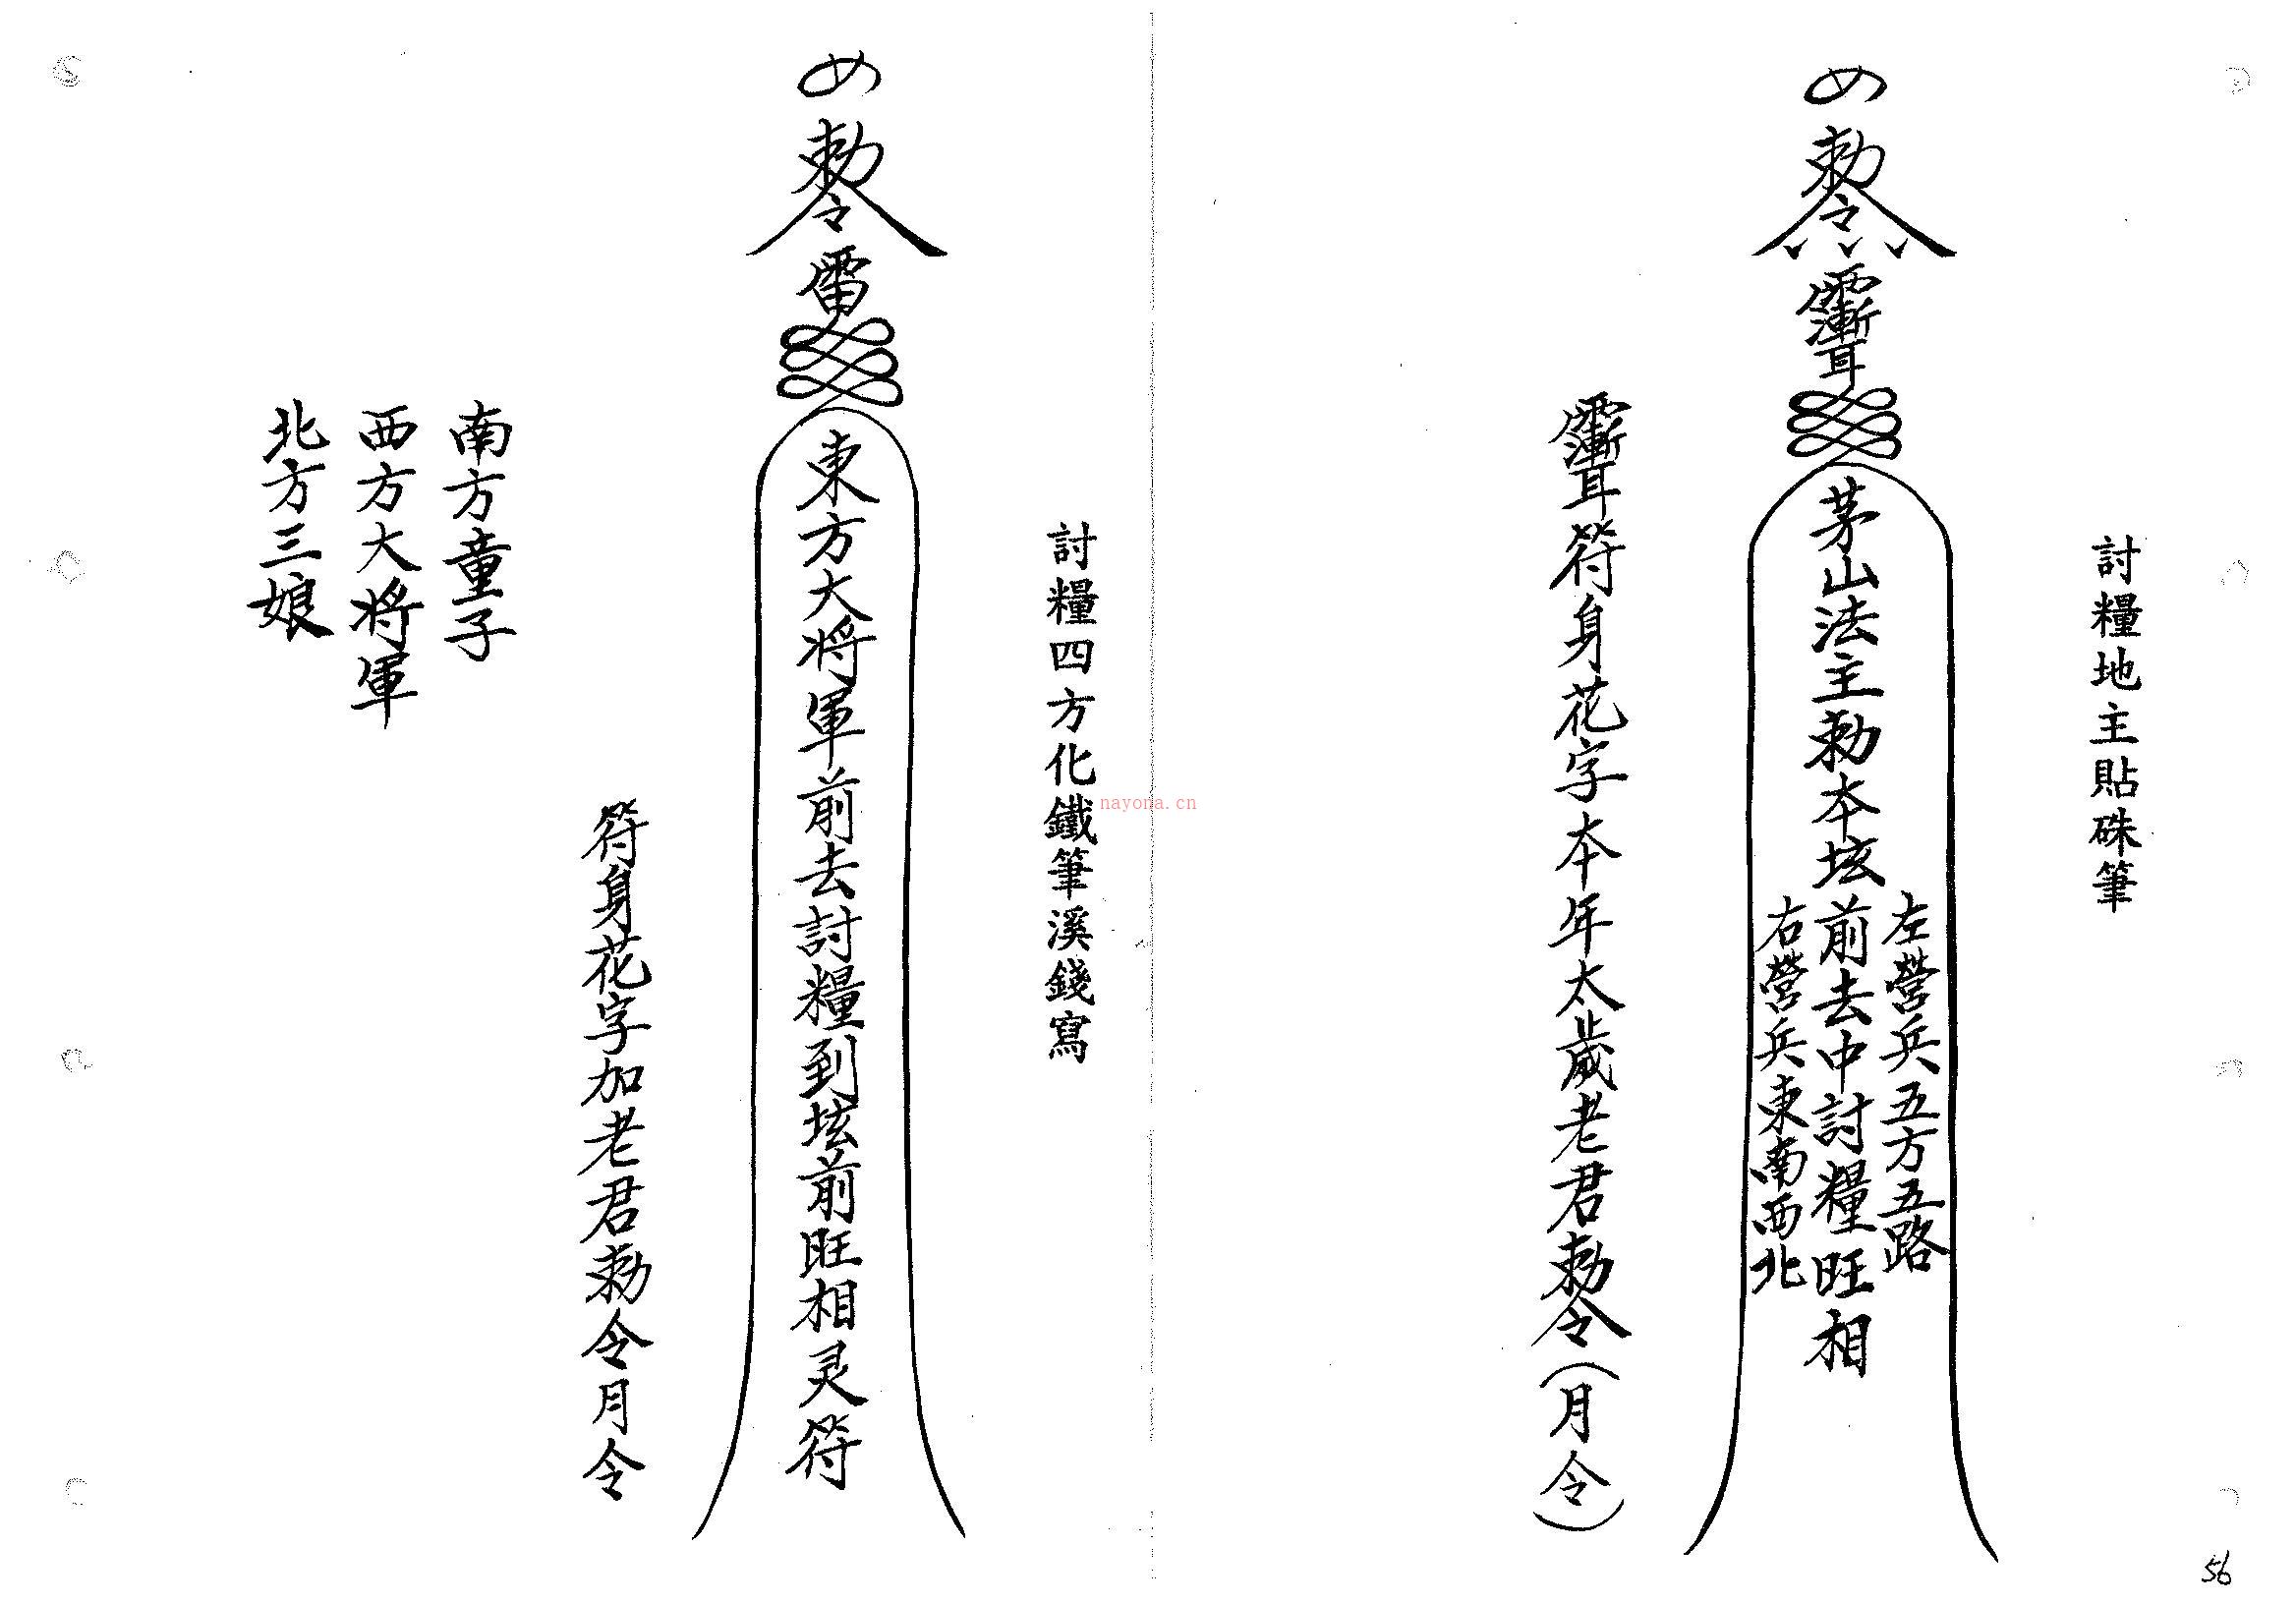 討糧地主貼硃筆
勅令
茅山法主勅本垓前去中討糧旺相
左營兵五方五路
右營兵東南西北
符身花字本年太歲老君勅令(月令)
討糧四方化鐵筆溪錢寫
勅令
東方大將軍前去討糧到垓前旺相灵符
符身花字加老君勅令月令
南方童子
西方大將軍
北方三娘
nayona.cn
56